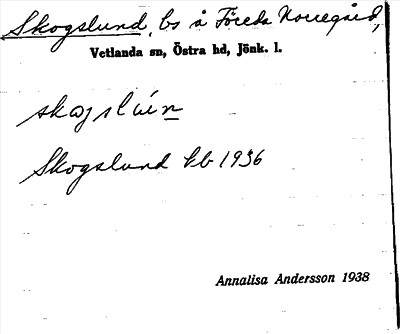 Skogslund, bs å Föreda Norregård,
Vetlanda sn, Östra hd, Jönk. l.
Skogslund kb 1936
Annalisa Andersson 1938